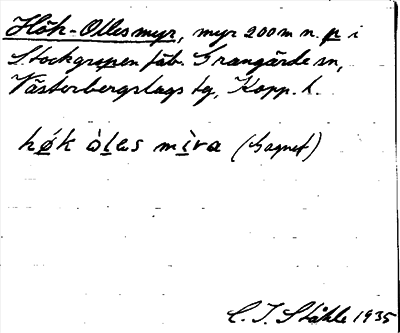 Hök-Ollesmyr, myr 200 m n. p i
Stockgropen fäb. Grangärde sn,
Västerbergslags tg, Kopp. l.
(Sagnef)
C. I. Ståhle 1935